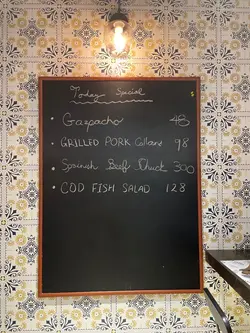 Today Special
• Gazpacho 48
• GRILLED PORK Collar 98
• Spanish Beef 300
• COD FISH SALAD 128